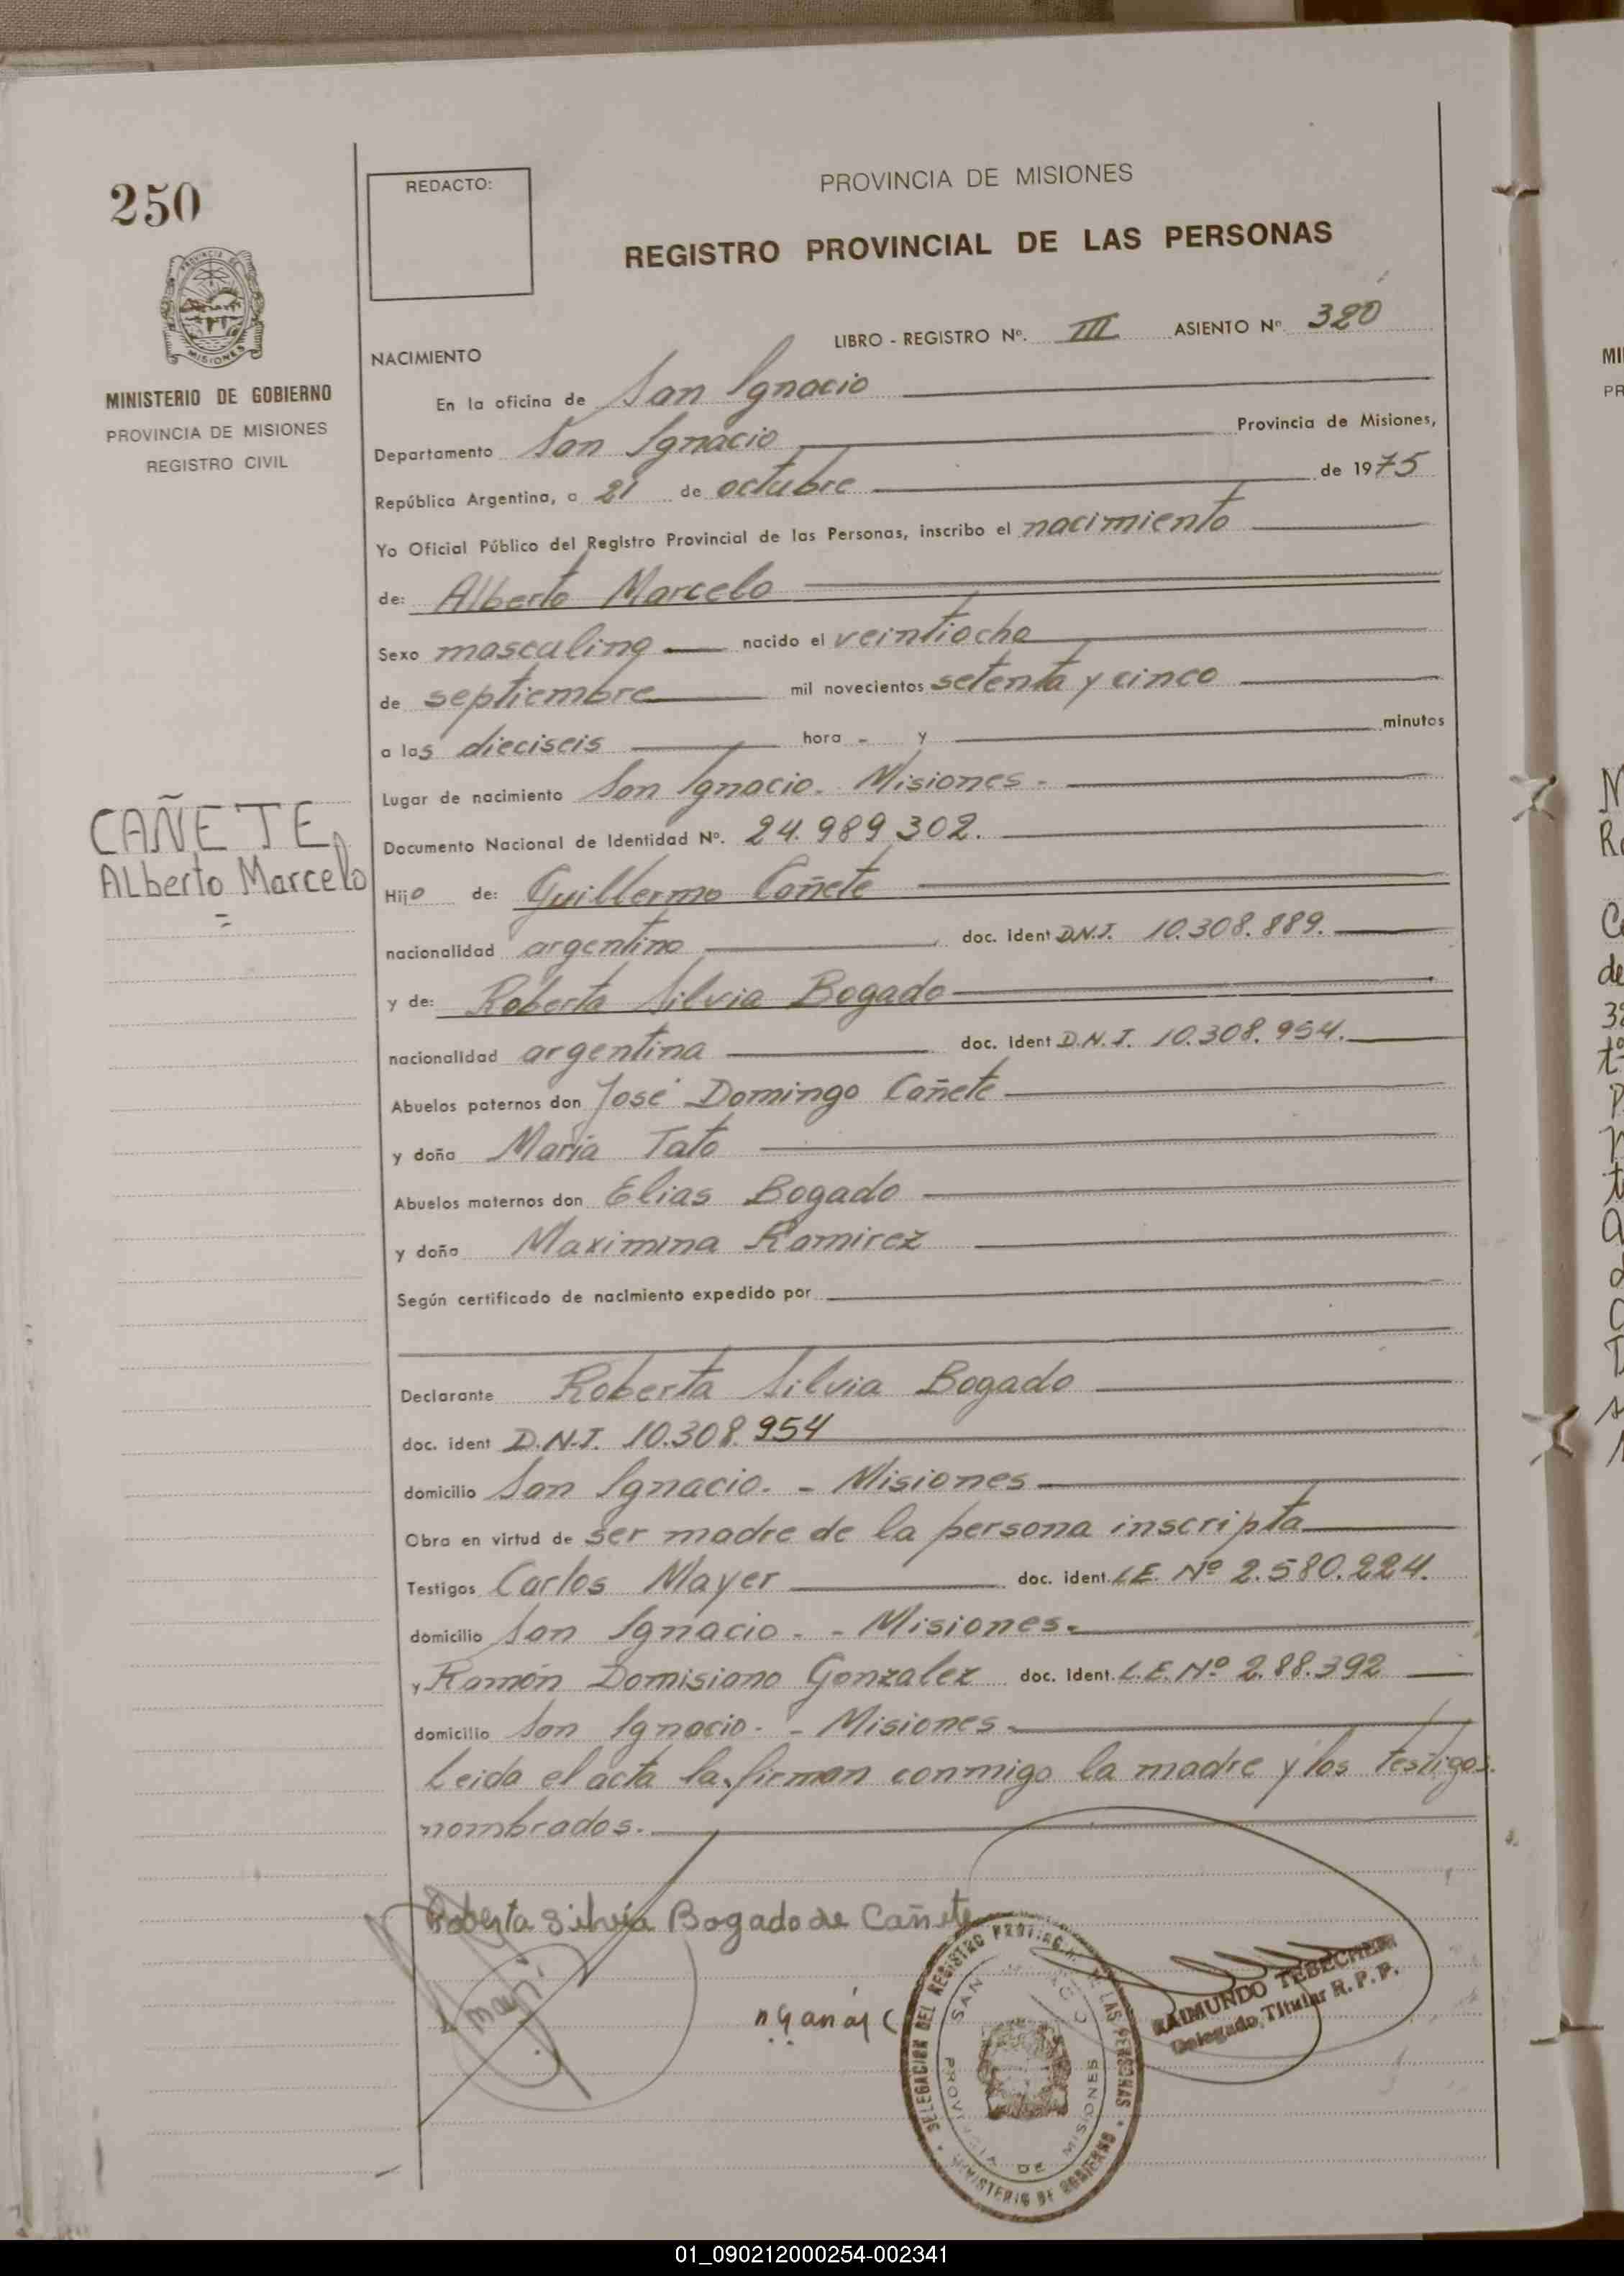 250
REDACTO:
PROVINCIA DE MISIONES
REGISTRO PROVINCIAL DE LAS PERSONAS
LIBRO - REGISTRO Nº. III ASIENTO Nº 320
NACIMIENTO
MISIONES
MINISTERIO DE GOBIERNO
PROVINCIA DE MISIONES
REGISTRO CIVIL
En la oficina de San Ignacio
Departamento San Ignacio Provincia de Misiones,
República Argentina, a 21 de octubre de 1975
Yo Oficial Público del Registro Provincial de las Personas, inscribo el nacimiento
de: Alberto Marcelo
Sexo masculino nacido el veintiocho
de septiembre mil novecientos setenta y cinco
a las dieciseis hora - y minutos
Lugar de nacimiento San Ignacio. Misiones -
Documento Nacional de Identidad Nº. 24.989.302.
CAÑETE,
Alberto Marcelo
=
Hijo de: Guillermo Cañete
nacionalidad argentino doc. ident D.N.I. 10.308.889.
y de: Roberta Silvia Bogado
nacionalidad argentina doc. ident D.N.I. 10.308.954.
Abuelos paternos don José Domingo Cañete
y doña María Tato
Abuelos maternos don Elias Bogado
y doña Maximina Ramirez
Según certificado de nacimiento expedido por
Declarante Roberta Silvia Bogado
doc. ident D.N.I. 10.308.954
domicilio San Ignacio. - Misiones
Obra en virtud de ser madre de la persona inscripta
Testigos Carlos Mayer doc. ident. L.E. Nº 2.580.224.
domicilio San Ignacio - - Misiones.
y Ramón Domisiano Gonzalez doc. ident. L.E. Nº 2.88.392
domicilio San Ignacio - - Misiones
Leida el acta la firman conmigo la madre y los testigos
nombrados.
Roberta Silvia Bogado de Cañete
DELEGACION DEL REGISTRO PROVINCIAL DE LAS PERSONAS
SAN IGNACIO
PROVINCIA DE MISIONES
MINISTERIO DE GOBIERNO
RAIMUNDO TEBECHERI
Delegado Titular R.P.P.
01_090212000254-002341